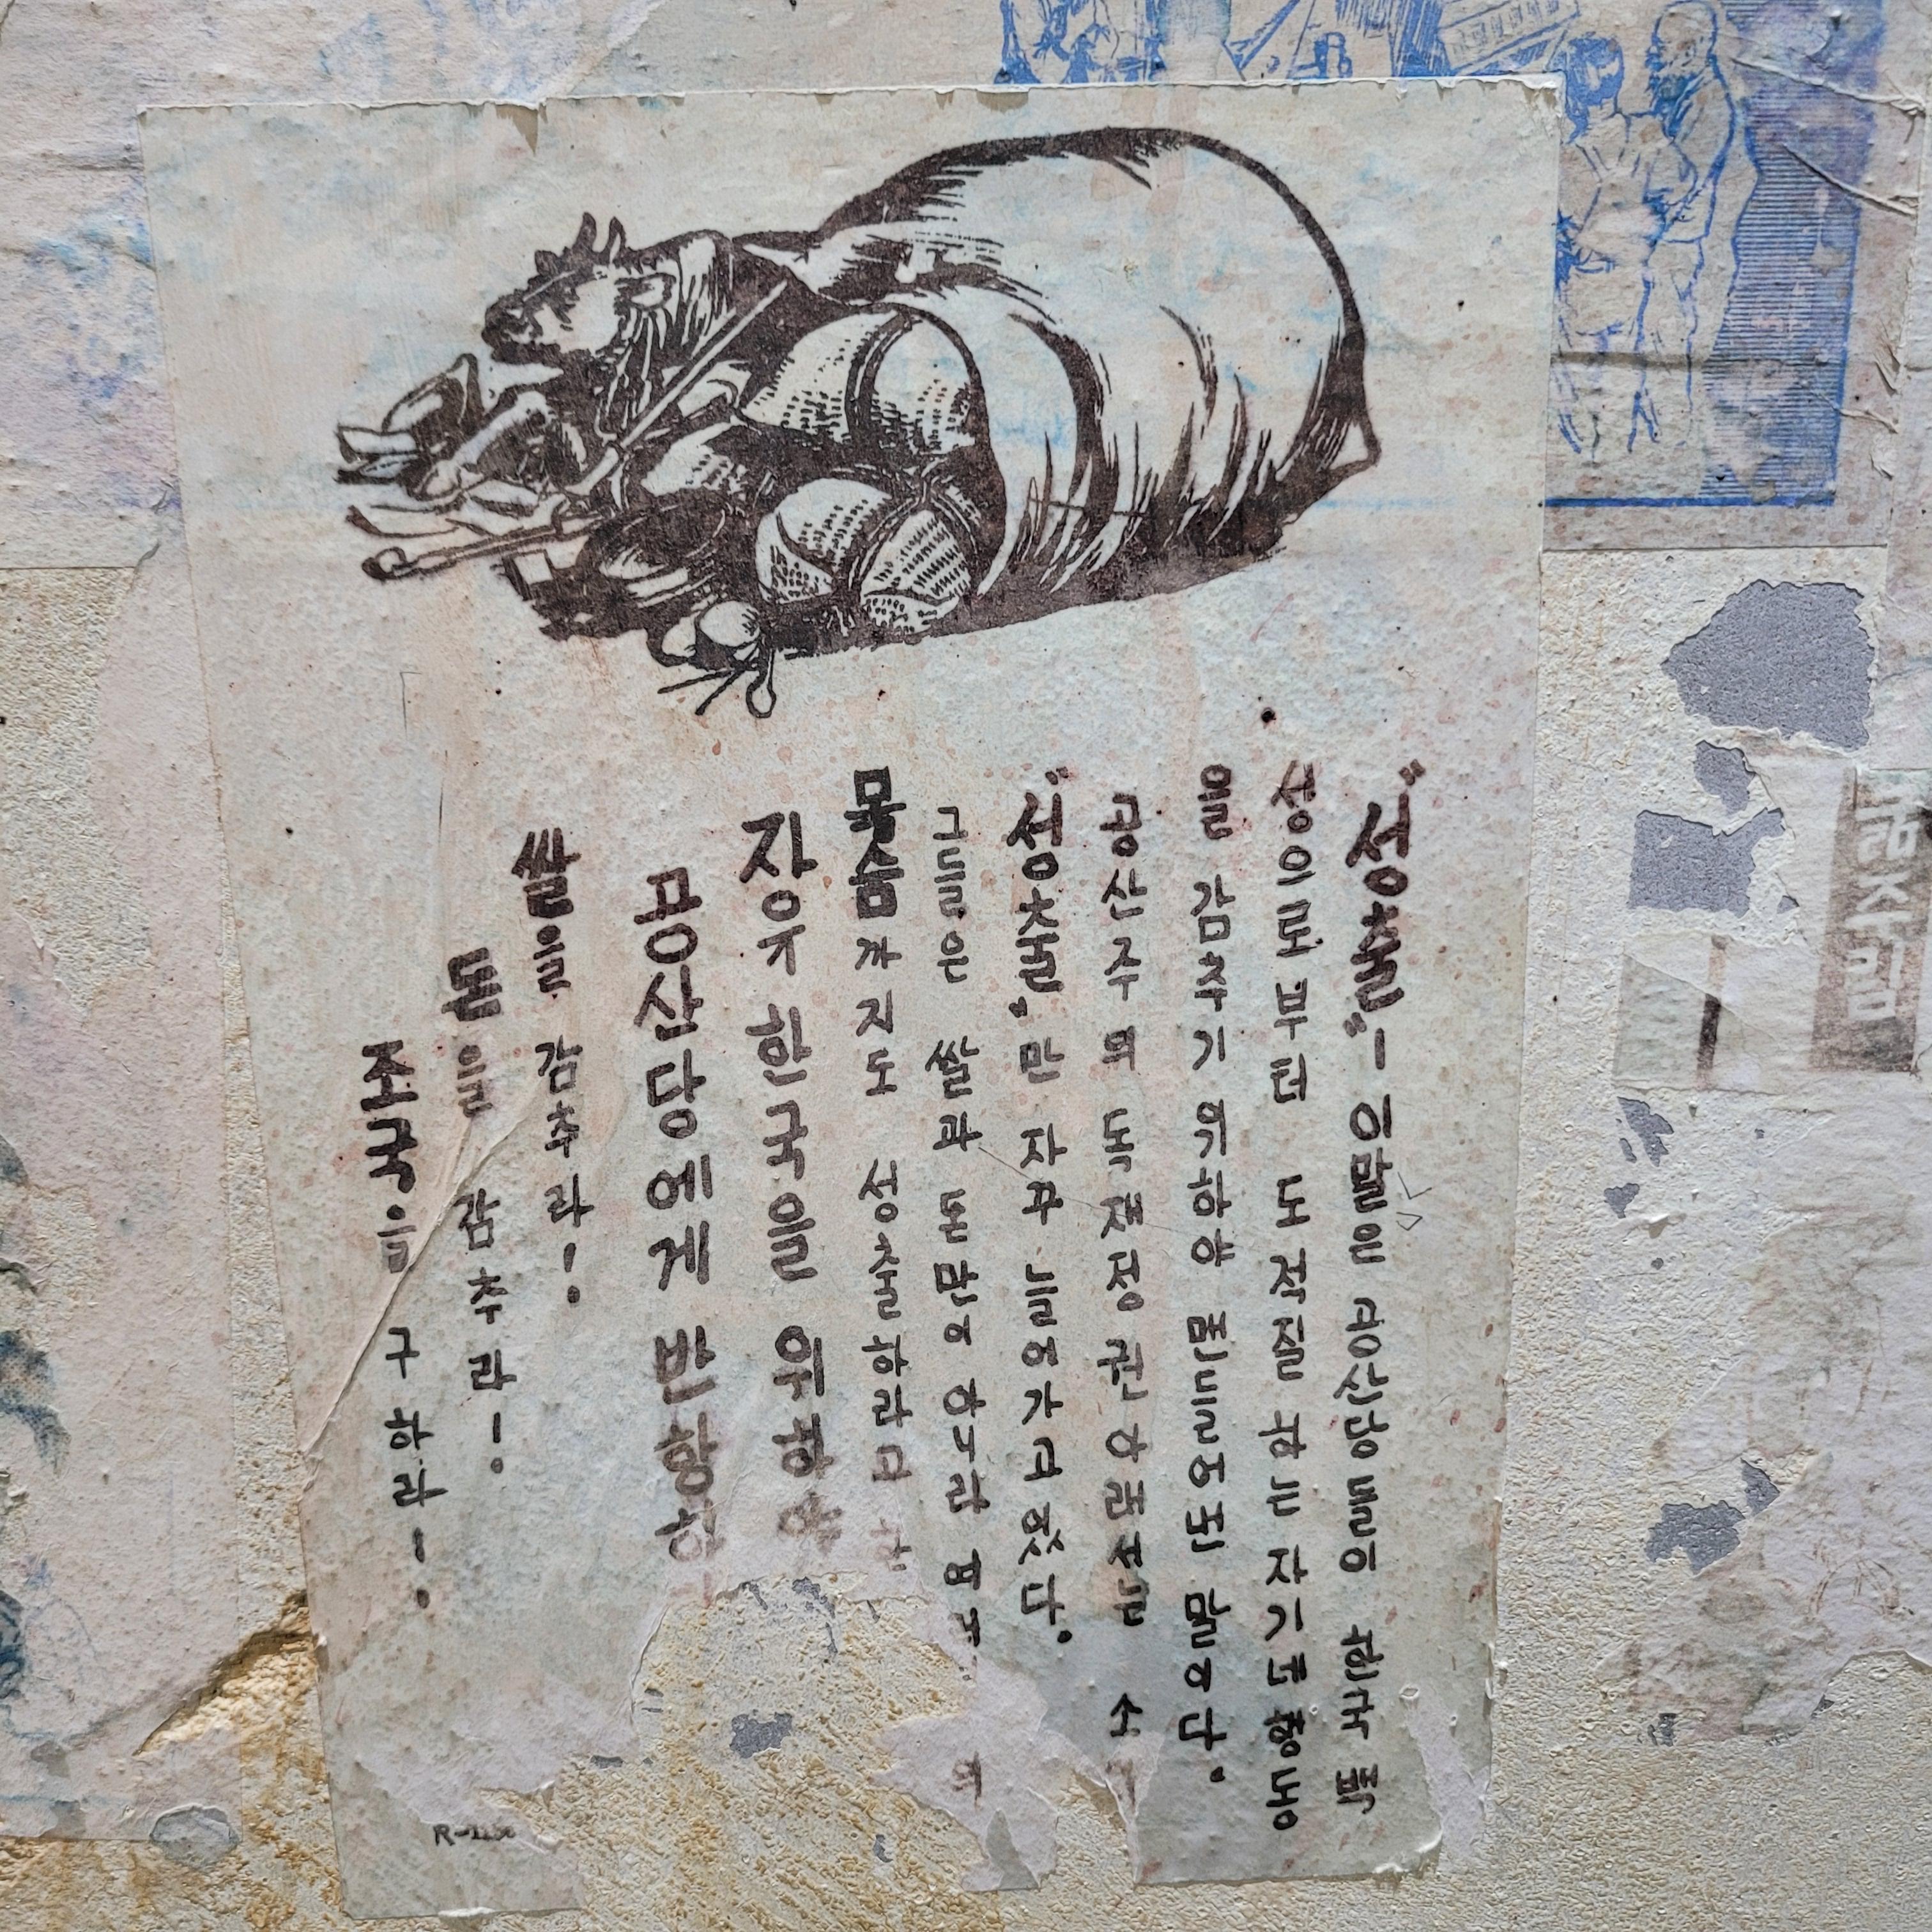 “성출”— 이말은 공산당들이 한국 백
성으로부터 도적질 하는 자기네 행동
을 감추기 위하야 맨드러오는 말이다.
공산주의 독재정권 아래서는
“성출”만 자꾸 늘어가고 있다.
그들은 쌀과 돈만이 아니라
목숨까지도 성출하라고
자유 한국을 위하야
공산당에게 반항하
쌀을 감추라!
돈을 감추라!
조국을 구하라!
굶주림